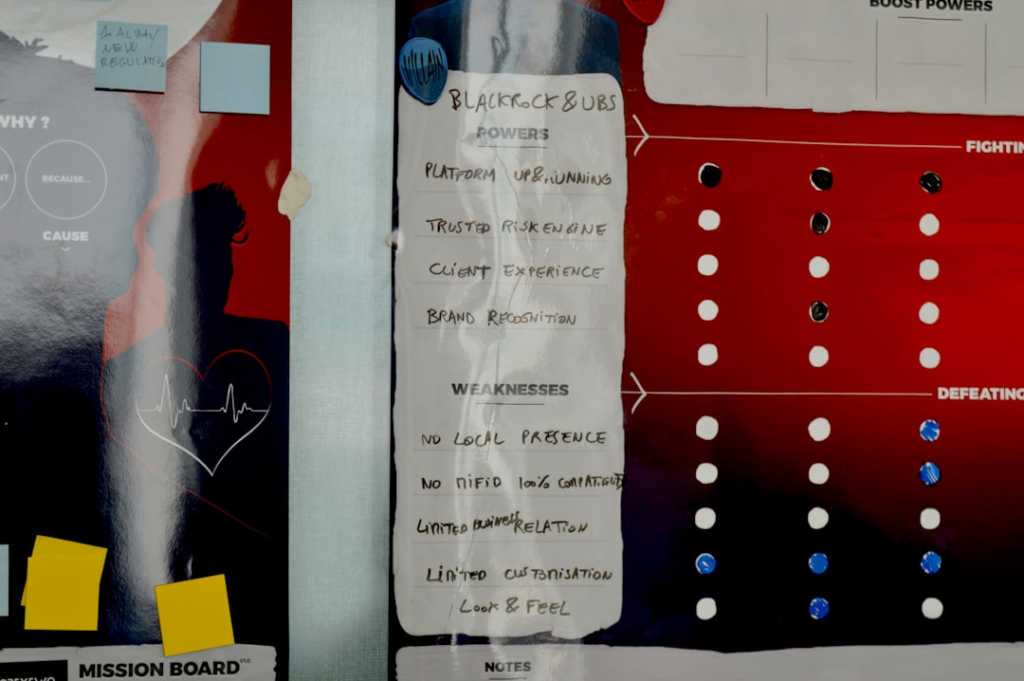 BOOST POWERS
NEW
WHY ?
BECAUSE...
CAUSE
VILLAIN
BLACKROCK & UBS
POWERS
PLATFORM UP & RUNNING
TRUSTED RISK ENGINE
CLIENT EXPERIENCE
BRAND RECOGNITION
WEAKNESSES
NO LOCAL PRESENCE
NO MIFID 100%
LIMITED BUSINESS RELATION
LIMITED CUSTOMISATION
LOOK & FEEL
FIGHTIN
DEFEATING
MISSION BOARD
NOTES